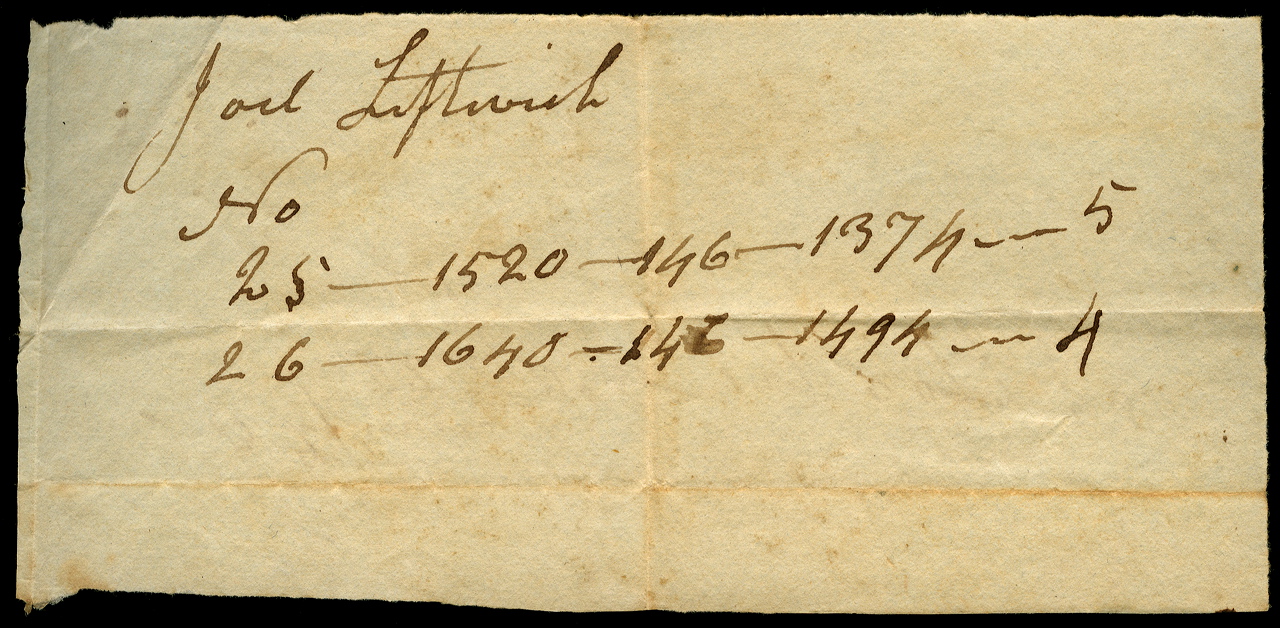 Joel Leftwich
No
25 — 1520 — 146 — 1374 — — 5
26 — 1640 — 146 — 1494 — — 4